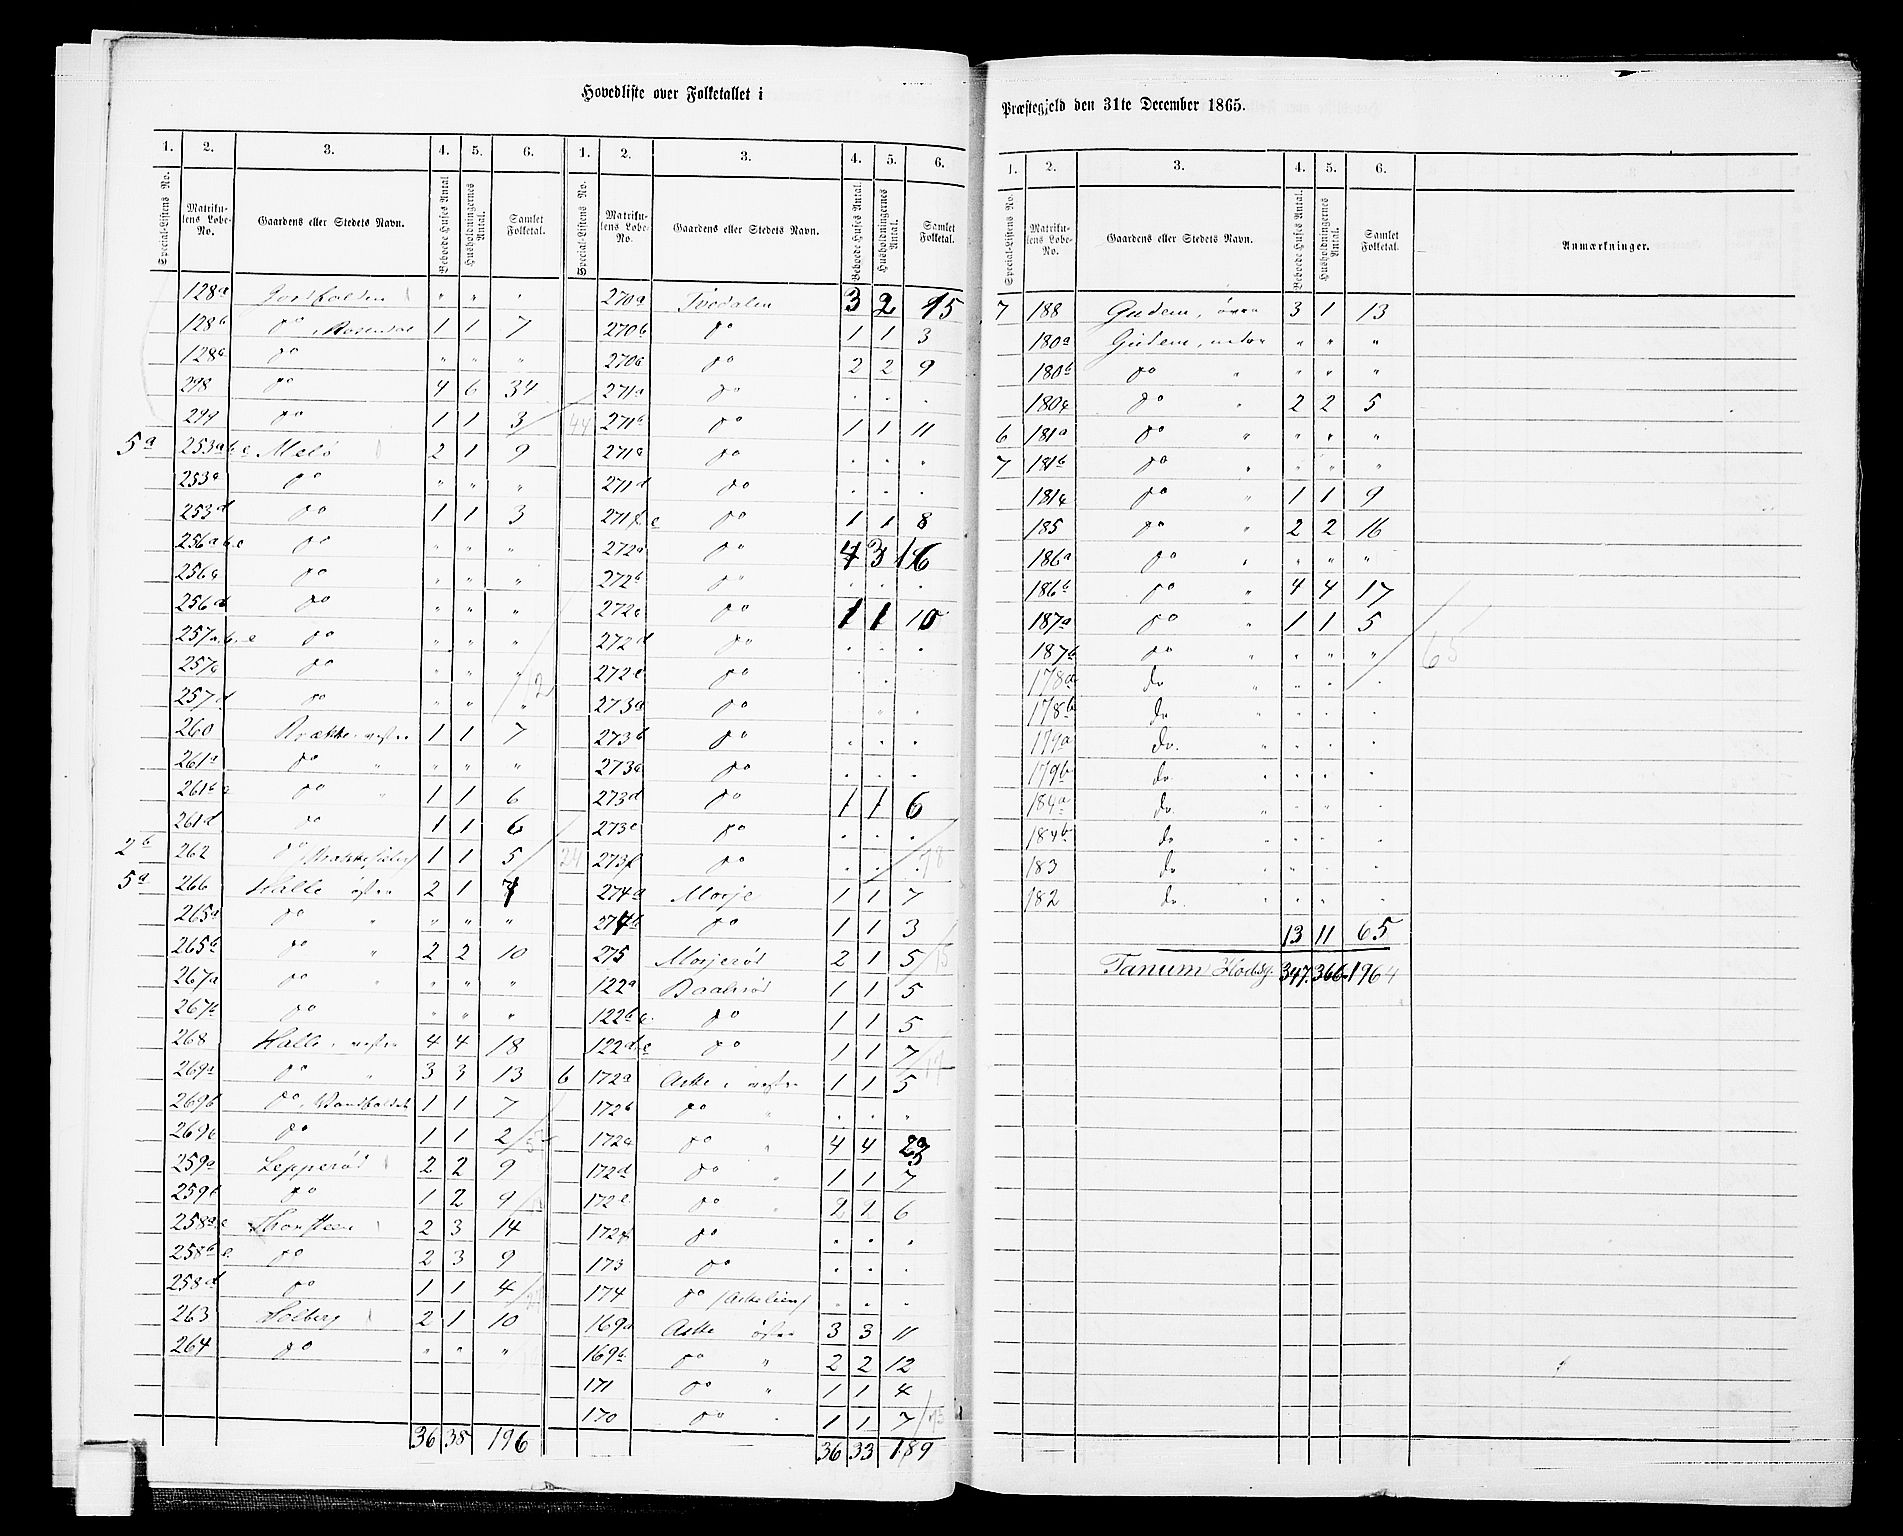 Hovedliste over Folketallet i
1. 2. 3. 4. 5. 6. 1. 2. 3. 4. 5. 6.
Special-Listens No. Matrikulens Løbe-No. Gaardens eller Stedets Navn. Beboede Huses Antal Husholdningernes Antal. Samlet Folketal. Special-Listens No. Matrikulens Løbe-No. Gaardens eller Stedets Navn. Beboede Huses Antal. Husholdningernes Antal. Samlet Folketal.
128a " " "
128b do, Rosendal 1 1 7
128c do " " "
298 do 4 6 34
299 do 1 1 3 44
5a 253a.b.c Melø 2 1 9
253a do " " "
253d do 1 1 3
256a.b.c do " " "
256c do " " "
256d do " " "
257a.b.c do " " "
257c do " " "
257d do " " " 12
260 Brække, vestre 1 1 7
261a do " " " "
261b do " 1 1 6
261d do 1 1 6
2b 262 do 1 1 5 24
5a 266 Halle østre 2 1 7
265a do " " " "
265b do " 2 2 10
267a do " " " "
267b do " " "
268 Halle, vestre 4 4 18
269a do " 3 3 13
269b do, 1 1 7
269c do 1 1 2
259a Lepperød 2 2 9
259b do 1 2 9
258a 2 3 14
258b.c. do 2 3 9
258d do 1 1 4
263 Holberg 2 1 10
264 do " " "
36 38 196
270a Tvedalen 3 2 15
270b do 1 1 3
270c do 2 2 9
271a do . . .
271b do 1 1 11
271c do . . .
271d do . . .
271f.e do 1 1 8
272a do 4 3 16
272b do . . .
272c do 1 1 10
272d do . . .
272e do . . .
273a do . . .
273b do . . .
273c do . . .
273d do 1 1 6
273e do . . .
273f do . . . 78
274a Morje 1 1 7
274b do 1 1 3
275 Morjerød 2 1 5 15
122a Baalsrød 1 1 5
122b c. do 1 1 5
122d.e do 1 1 7 17
6 172a Aske, vestre 1 1 5
172b do " . . "
172c do " 4 4 23
172d do " 1 1 7
172e do " 2 1 6
172f do . . .
173 do . . .
174 do (Askelien) . . .
169a Aske østre 3 3 11
169b. do " 2 2 12
171 do " 1 1 4
170 do " 1 1 7 75
36 33 189
Præstegjeld den 31te December 1865.
1. 2. 3. 4. 5. 6.
Special-Listens No. Matrikulens Løbe-No. Gaardens eller Stedets Navn. Beboede Huses Antal. Husholdningernes Antal. Samlet Folketal. Anmærkninger.
7 188 Gudem, øvre 3 1 13
180a Gudem, nedre " " "
180b do " " " "
180c do " 2 2 5
6 181a do " " " "
7 181b do " " " "
181c do " 1 1 9
185 do " 2 2 16
186a do " " " "
186b do " 4 4 17
187a do " 1 1 5
187b do " " " " 65
178a do " " " .
178b do " . . .
179a do. " . . .
179b do " . . .
184a do " . . .
184b do " . . .
183 do " . . .
182 do. " . . .
13 11 65
Tanum Hovedsg. 347. 366. 1964